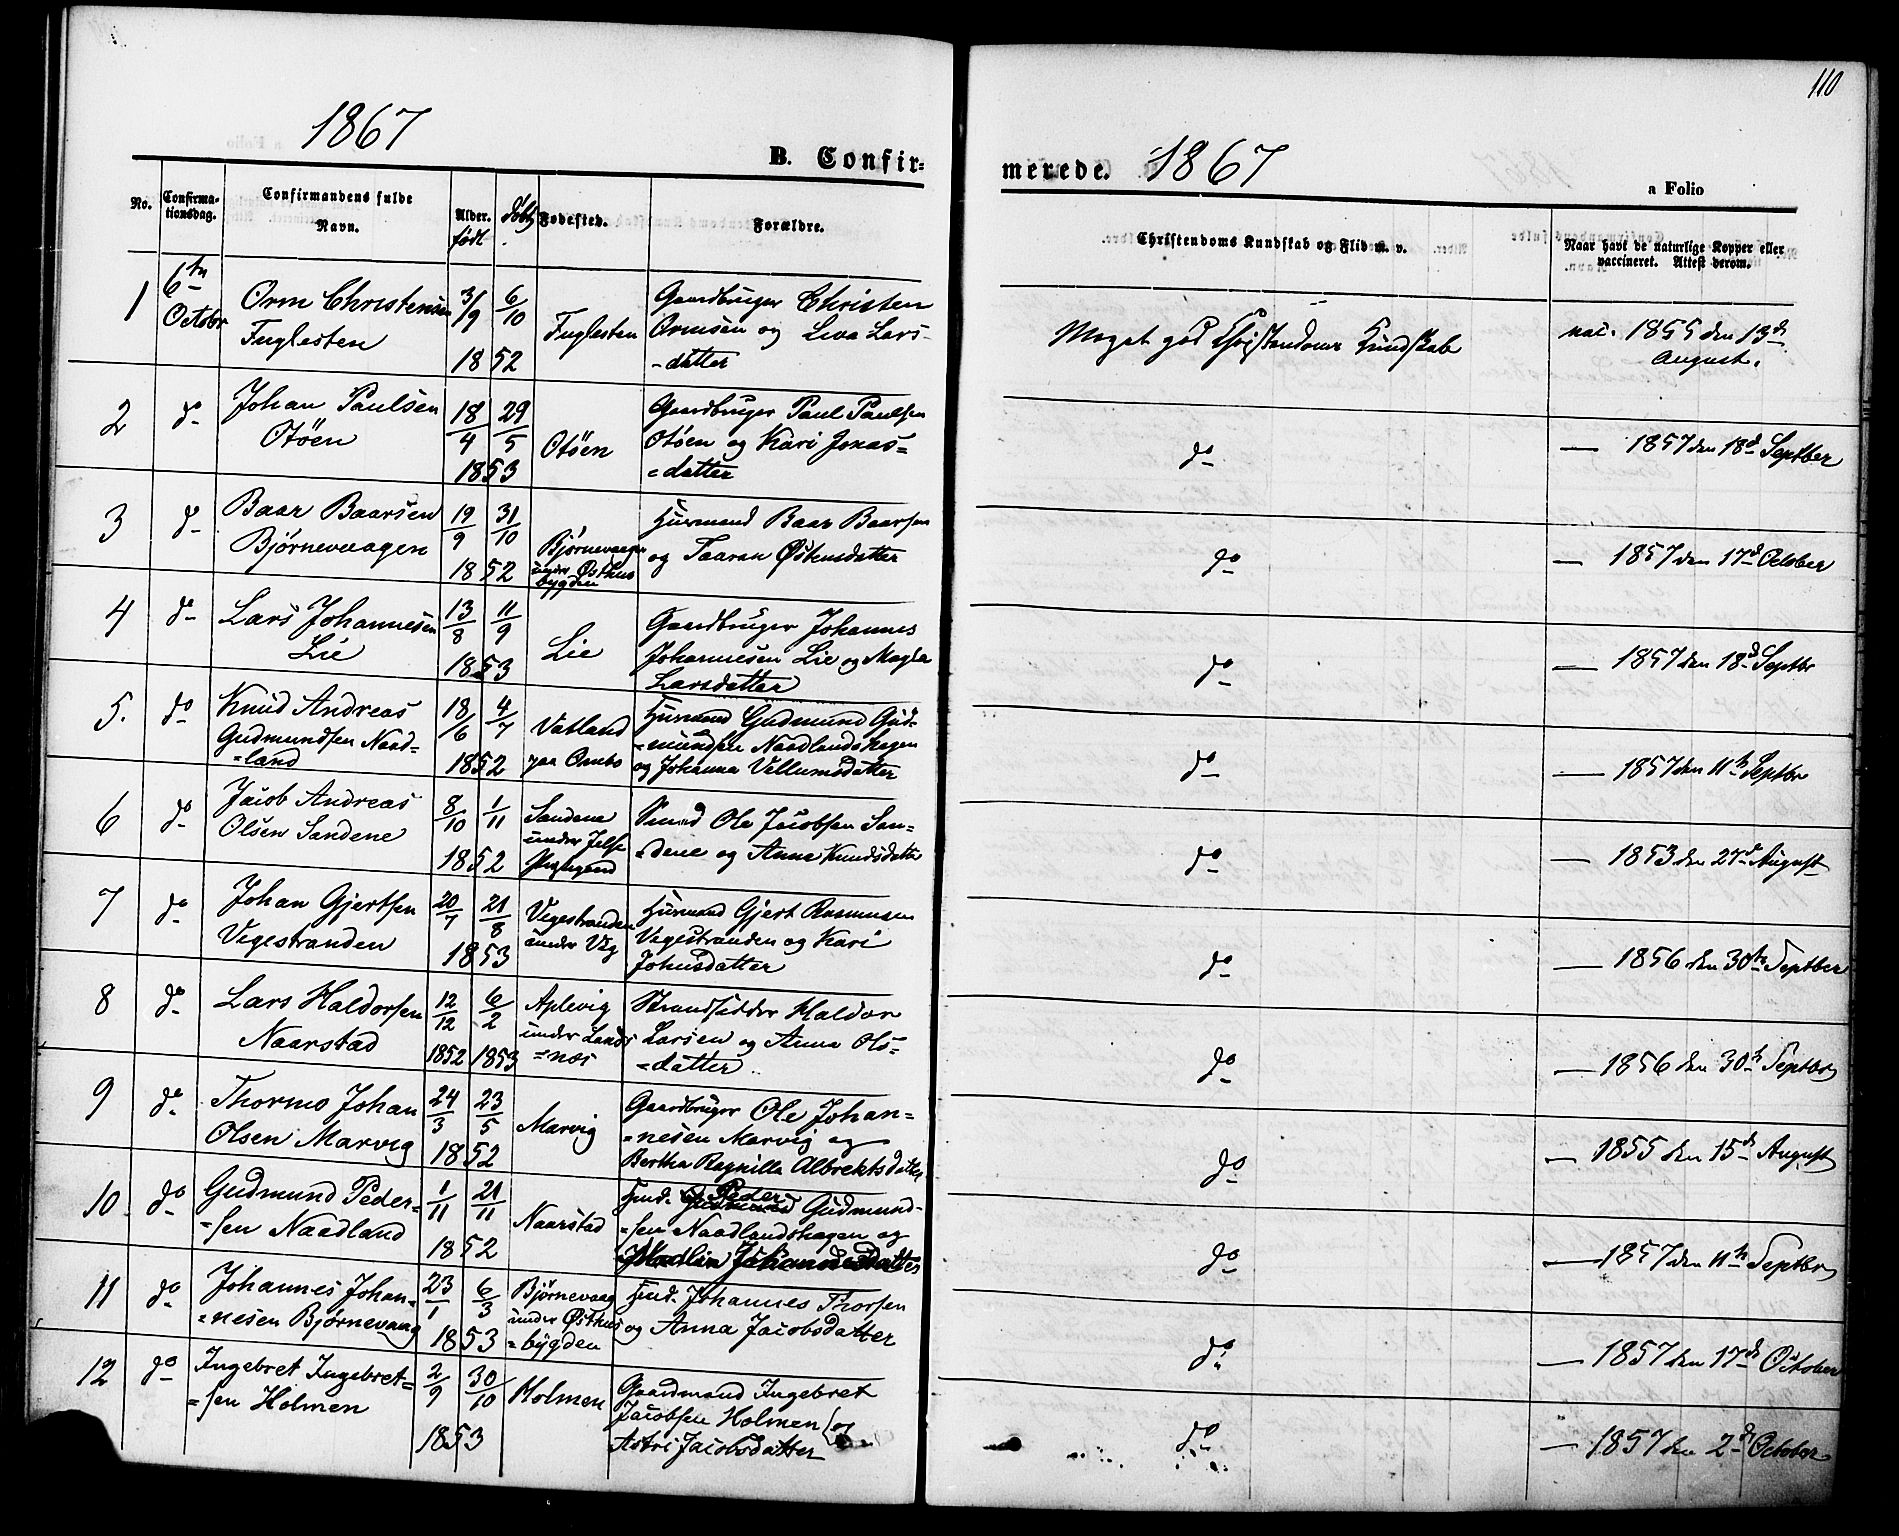 110
1867
1867
B. Confir-
merede.
a Folio
No.
Confirma-
tionsdag.
Confirmandens fulde
Navn.
Alder.
født
døbt
Fødested.
Forældre.
Christendoms Kundskab og Flid m. v.
Naar havt de naturlige Kopper eller
vaccineret. Attest derom.
1
6te
Octobr
Orm Christensen
Fuglesten
3/9 6/10
1852
Fuglesten
Gaardbruger Christen
Ormsen og Liva Lars-
-datter
Meget god Christendoms Kundskab
vac. 1855 den 13de
August.
2
do
Johan Paulsen
Otöen
18/4 29/5
1853
Otöen
Gaardbruger Paul Paulsen
Otöen og Kari Jonas=
=datter
do
— 1857 den 18de Septber
3
do
Baar Baarsen
Bjørnevaagen
19/9 31/10
1852
Bjørnevaagen
under Østhus
bygden
Husmand Baar Baarsen
og Taaran Østensdatter
do
— 1857 den 17de October
4
do
Lars Johannesen
Lie
13/8 11/9
1853
Lie
Gaardbruger Johannes
Johannesen Lie og Magla
Larsdatter
do
— 1857 den 18de Septbr
5.
do
Knud Andreas
Gudmundsen Naad=
=land
18/6 4/7
1852
Vatland
paa Ombo
Husmand Gudmund Gud=
=mundsen Naadlandshagen
og Johanna Villumsdatter
do
— 1857 den 11te Septbr
6
do
Jacob Andreas
Olsen Sandene
8/10 1/11
1852
Sandene
under Jelse
Præstegaard
Smed Ole Jacobsen San=
=dene og Anna Knudsdatter
do
— 1853 den 27de August
7
do
Johan Gjertsen
Vegestranden
20/7 21/8
1853
Vegestranden
under Veg
Husmand Gjert Rasmusen
Vegestranden og Kari
Johnsdatter
do
— 1856 den 30te Septber
8
do
Lars Haldorsen
Naarstad
12/12 6/2
1852 1853
Aplevig
under Lands
=næs
Strandsidder Haldor
Larsen og Anna Ols=
=datter
do
— 1856 den 30te Septbr
9
do
Thormo Johan
Olsen Marvig
24/3 23/5
1852
Marvig
Gaardbruger Ole Johan=
=nesen Marvig og
Bertha Ragnilla Albrektsdatter
do
— 1855 den 15de August
10.
do
Gudmund Peder=
=sen Naadland
1/11 21/11
1852
Naarstad
Husd. Peder Gudmund-
=sen Naadlandshagen og
Johannesdatter
do
— 1857 den 11te Septbr
11
do
Johannes Johan=
=nesen Bjørnevaag
23/1 6/3
1853
Bjørnevaag
under Østhus
=bygden
Husd. Johannes Thorsen
og Anna Jacobsdatter
do
— 1857 den 17de October
12
do
Ingebret Ingebret=
=sen Holmen
2/9 30/10
1853
Holmen
Gaardmand Ingebret
Jacobsen Holmen og
Astri Jacobsdatter
do
— 1857 den 2de October